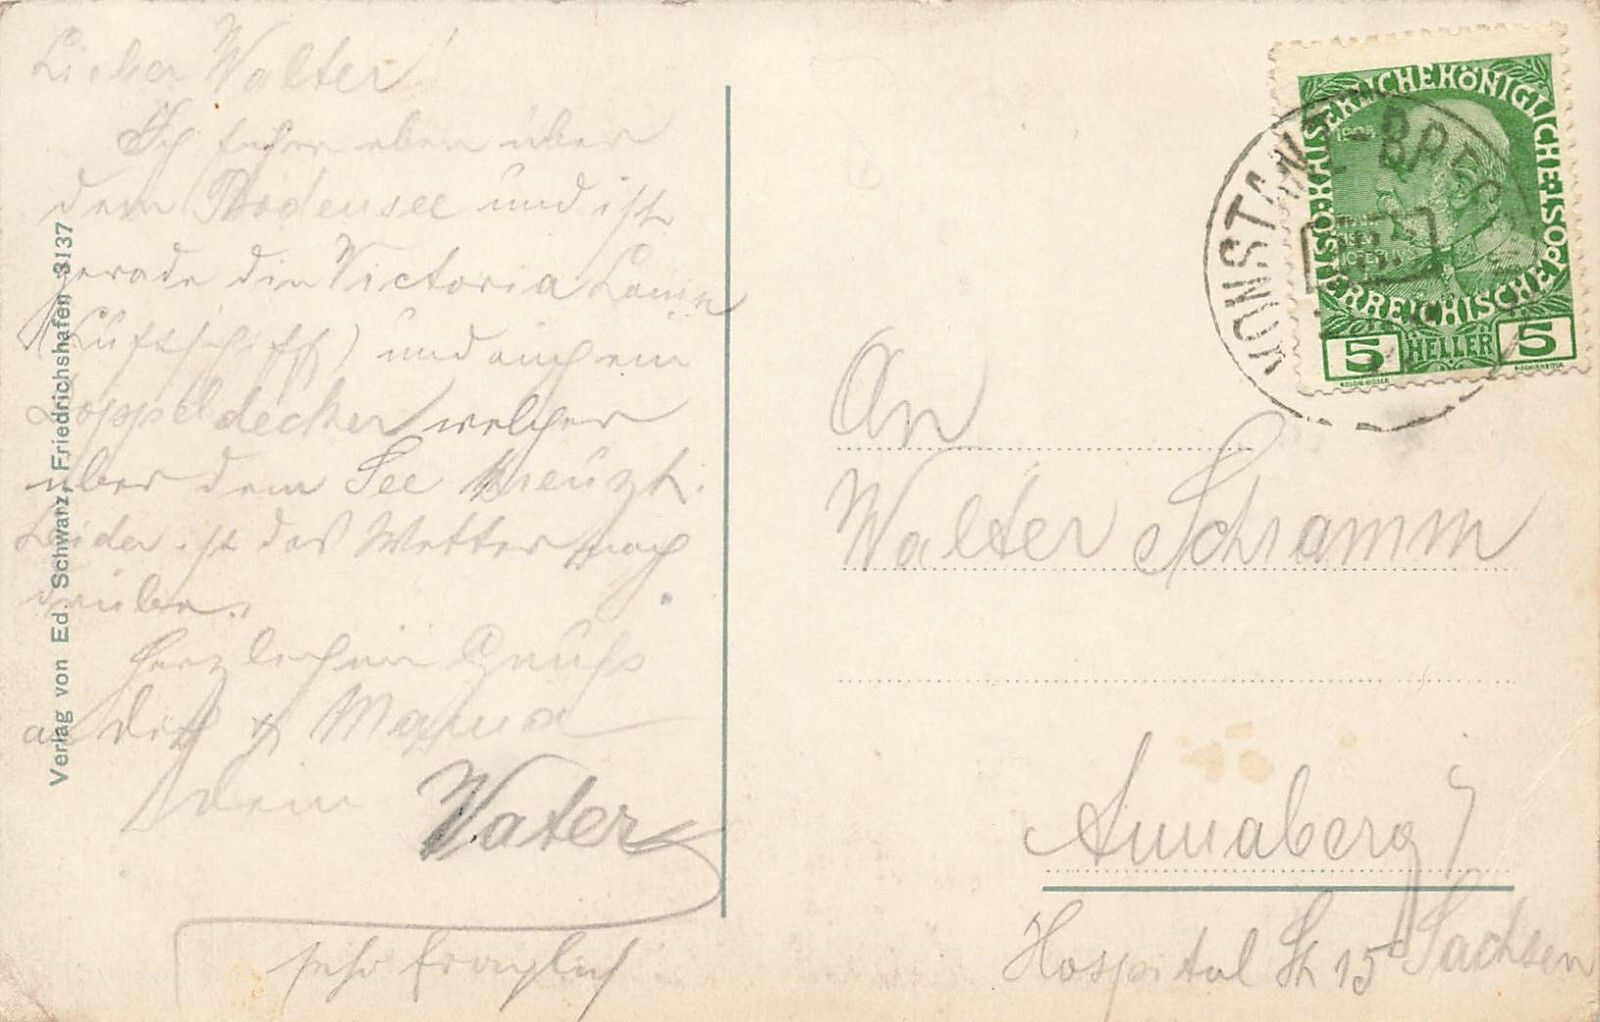 Lieber Walter!
Ich fahre eben über
dem Bodensee und ist
gerade die Victoria Louise
(Luftschiff) und auch ein
Doppeldecker welcher
über dem See kreuzt.
Leider ist das Wetter
trübe.
Herzlichen Gruß
a dich & Mama
dein Vater
sehr fraglich
Verlag von Ed. Schwarz, Friedrichshafen 3137
KAISERLICHE KÖNIGLICHE ÖSTERREICHISCHE POST
1908
5 HELLER 5
KONSTANZ-BREG
An
Walter Schramm
Annaberg /
Sachsen
Hospital St 15